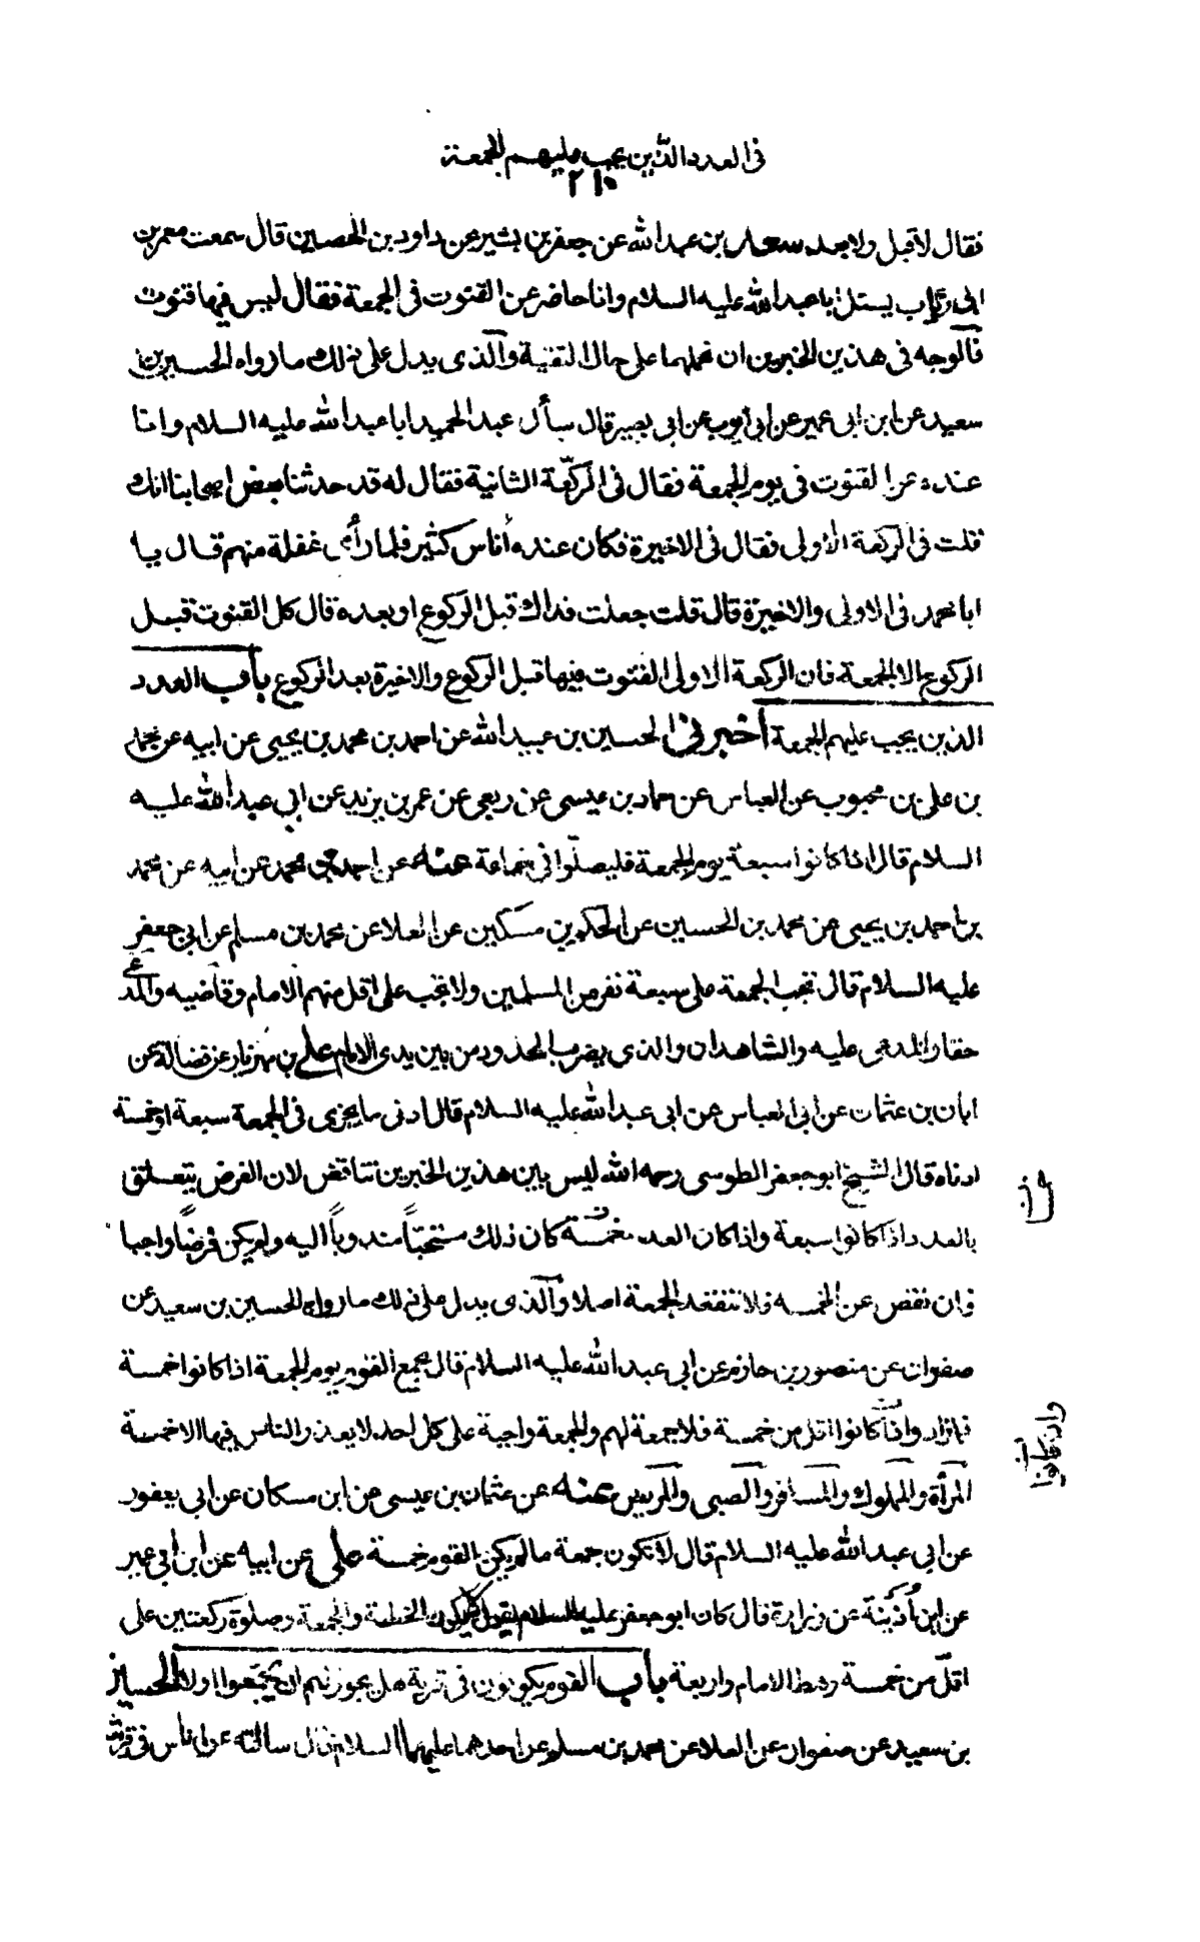 فى العدد الذين يجب عليهم الجمعة
٢١٠
فقال لا قبل ولا بعد سعد بن عبد الله عن جعفر بن بشير عن داود بن الحصين قال سمعت معمر بن
ابى رئاب يسئل ابا عبد الله عليه السلام وانا حاضر عن القنوت فى الجمعة فقال ليس فيها قنوت
فالوجه فى هذين الخبرين ان نحملهما على حال التقية والذى يدل على ذلك ما رواه الحسين بن
سعيد عن ابن ابى عمير عن ابى ايوب عن ابى بصير قال سأل عبد الحميد ابا عبد الله عليه السلام وانا
عنده عن القنوت فى يوم الجمعة فقال فى الركعة الثانية فقال له قد حدثنا بعض اصحابنا انك
قلت فى الركعة الاولى فقال فى الاخيرة فكان عنده أناس كثير فلما رأى غفلة منهم قال يا
ابا محمد فى الاولى والاخيرة قال قلت جعلت فداك قبل الركوع او بعده قال كل القنوت قبل
الركوع الا الجمعة فان الركعة الاولى القنوت فيها قبل الركوع والاخيرة بعد الركوع باب العدد
الذين يجب عليهم الجمعة أخبرنى الحسين بن عبيد الله عن احمد بن محمد بن يحيى عن ابيه عن محمد
بن على بن محبوب عن العباس عن حماد بن عيسى عن ربعى عن عمر بن يزيد عن ابى عبد الله عليه
السلام قال اذا كانوا سبعة يوم الجمعة فليصلّوا فى جماعة عنه عن احمد بن محمد عن ابيه عن محمد
بن احمد بن يحيى عن محمد بن الحسين عن الحكم بن مسكين عن العلا عن محمد بن مسلم عن ابى جعفر
عليه السلام قال تجب الجمعة على سبعة نفر من المسلمين ولا تجب على اقل منهم الامام وقاضيه والمدعى
حقا والمدعى عليه والشاهدان والذى يضرب الحدود من بين يدى الامام على بن مهزيار عن فضالة عن
ابان بن عثمان عن ابى العباس عن ابى عبد الله عليه السلام قال ادنى ما يجزى فى الجمعة سبعة او خمسة
ادناه قال الشيخ ابو جعفر الطوسى رحمه الله ليس بين هذين الخبرين تناقض لان الفرض يتعلق
بالعدد اذا كانوا سبعة واذا كان العدد خمسة كان ذلك مستحبّاً مندوباً اليه ولم يكن فرضًا واجبا
فان نقص عن الخمسه فلا تنعقد الجمعة اصلا والذى يدل على ذلك ما رواه الحسين بن سعيد عن
صفوان عن منصور بن حازم عن ابى عبد الله عليه السلام قال يجمع القوم يوم الجمعة اذا كانوا خمسة
فما زاد واذا كانوا اقل من خمسة فلا جمعة لهم والجمعة واجبة على كل احد لا يعذر الناس فيها الا خمسة
وان كانوا
المرأة والمملوك والمسافر والصبى والمريض عنه عن عثمان بن عيسى عن ابن مسكان عن ابى يعفور
عن ابى عبد الله عليه السلام قال لا تكون جمعة ما لم يكن القوم خمسة على عن ابيه عن ابن ابى عمير
عن ابن أذينة عن زرارة قال كان ابو جعفر عليه السلام يقول لا يكون الخطبة والجمعة وصلوة ركعتين على
اقلّ من خمسة رهط الامام واربعة باب القوم يكونون فى قرية هل يجوز لهم ان يجمّعوا او لا الحسين
بن سعيد عن صفوان عن العلا عن محمد بن مسلم عن احدهما عليهما السلام قال سالته عن اناس فى قرية